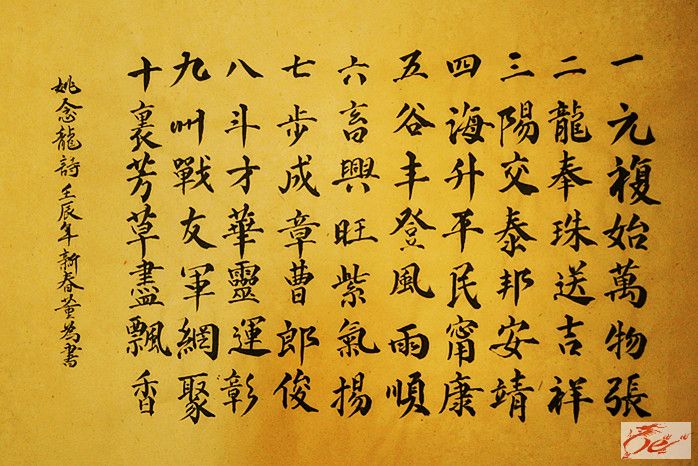 一元複始萬物張
二龍奉珠送吉祥
三陽交泰邦安靖
四海升平民甯康
五谷丰登風雨順
六畜興旺紫氣揚
七步成章曹郎俊
八斗才華靈運彰
九州戰友軍網聚
十裏芳草盡飄香
姚念龍詩壬辰年新春黃為書